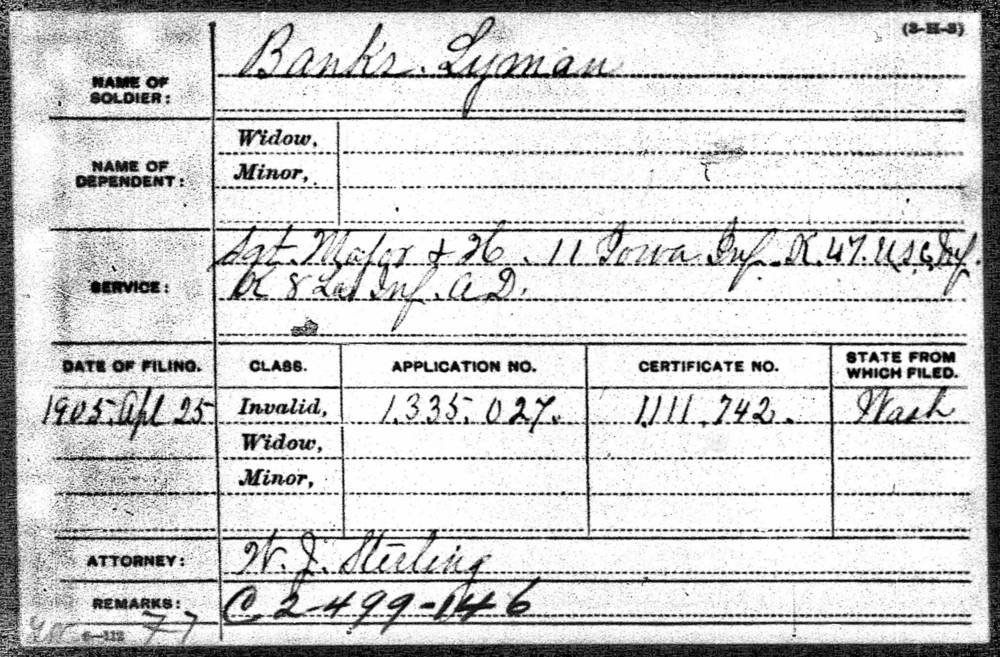 (3-H-3)
NAME OF SOLDIER: Banks. Lyman
NAME OF DEPENDENT: Widow,
Minor,
SERVICE: Sgt. Major & H. 11 Iowa Inf. K. 47. U.S.C. Inf.
K 8 La Inf. A.D.
DATE OF FILING. CLASS. APPLICATION NO. CERTIFICATE NO. STATE FROM WHICH FILED.
1905. Apl 25 Invalid, 1.335.027. 1111.742. Wash
Widow,
Minor,
ATTORNEY: W. J. Sterling
REMARKS: C 2-499-146
6—112 77